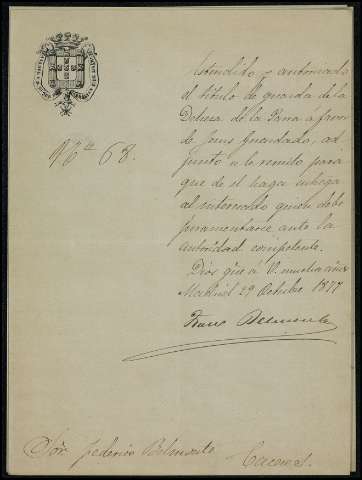 Nº 68.
Estendido y autorizado
el título de guarda de la
Dehesa de la Parra a favor
de Jesus Guardado, ad-
junto se le remito para
que de él haga entrega
al interesado quien debe
juramentarse ante la
autoridad competente.
Dios gũe á V. muchos años
Madrid 29 Octubre 1877
Belmonte
Sor. Federico Belmonte
Caceres.